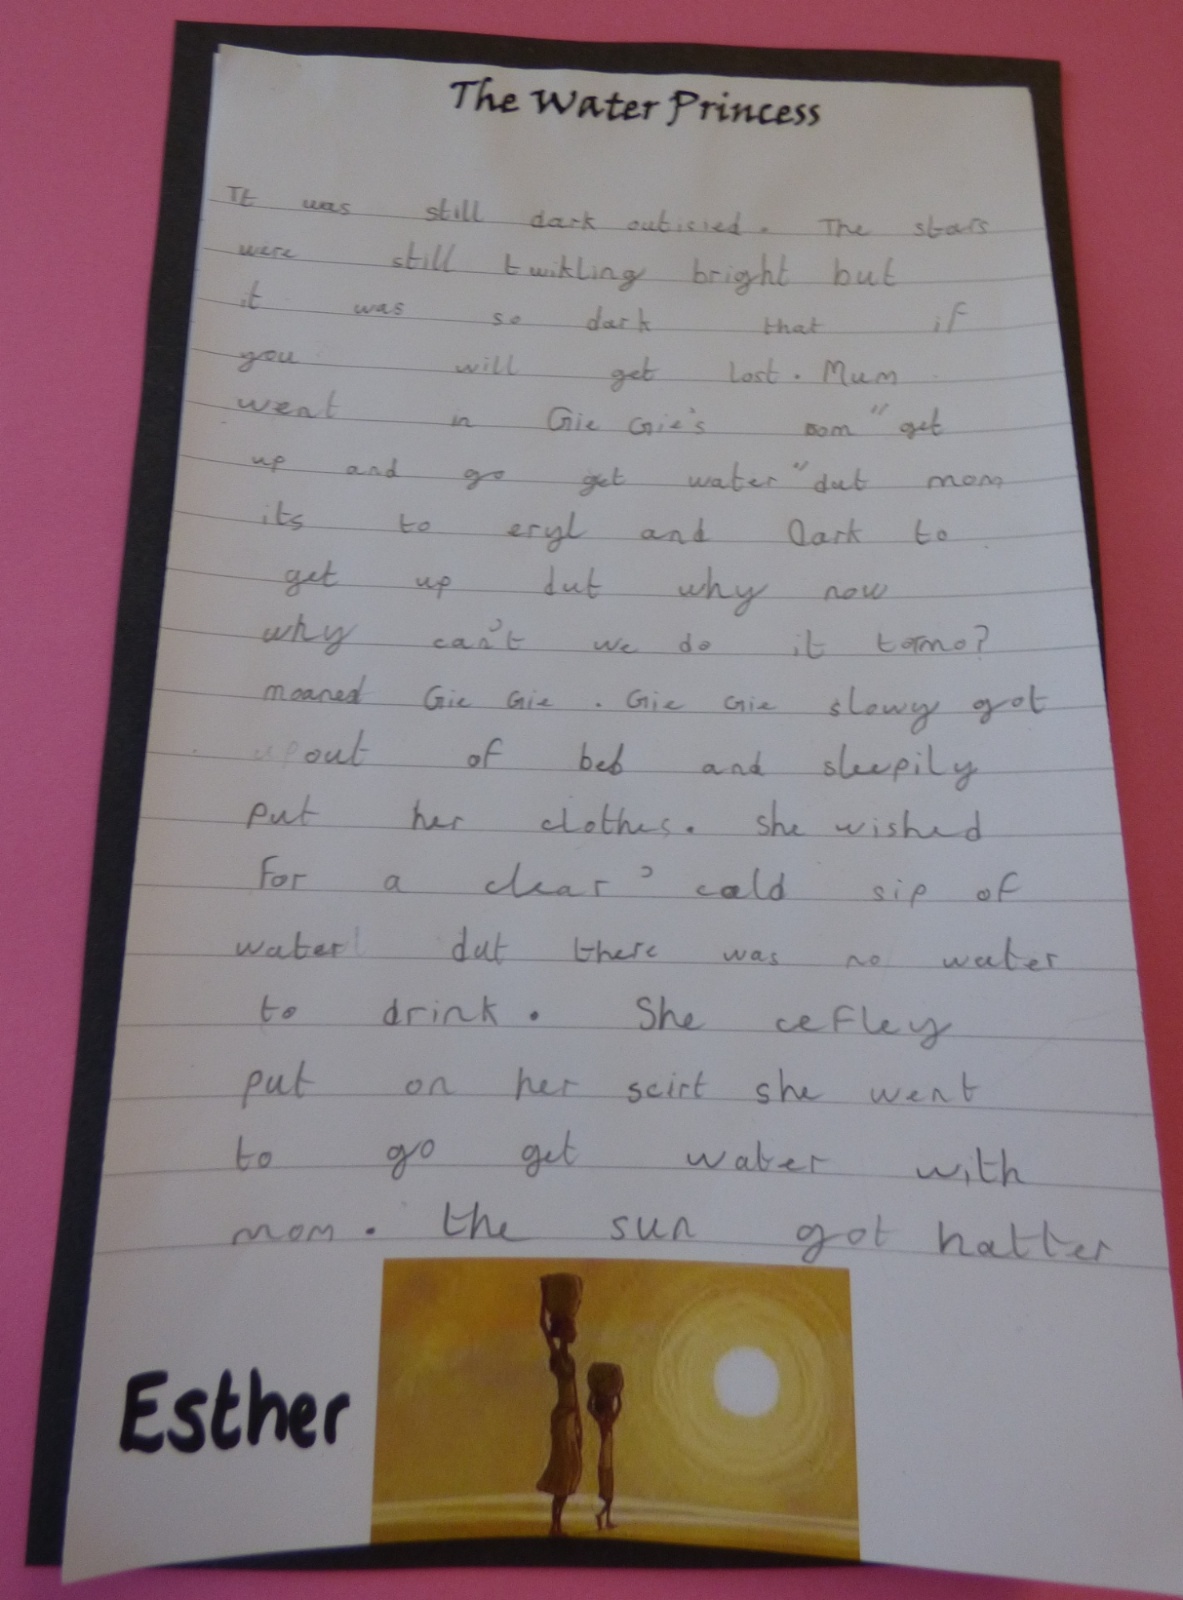 The Water Princess
It was still dark outisied. The stars
were still twikling bright but
it was so dark that if
you will get lost. Mum
went in Gie Gie's oom "get
up and go get water" dut mom
its to eryl and Dark to
get up dut why now
why can't we do it tomo?
moaned Gie Gie. Gie Gie slowy got
up out of beb and sleepily
put her clothes. She wished
For a clear, cald sip of
water dut there was no water
to drink. She cefley
put on her scirt she went
to go get water with
mom. the sun got hatter
Esther